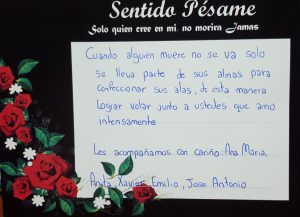 Sentido Pésame
Solo quien cree en mi. no morira Jamas
Cuando alguien muere no se va solo
se lleva parte de sus almas para
confeccionar sus alas, de esta manera
lograr volar junto a ustedes que amo
intensamente
Les acompañamos con cariño: Ana Maria,
Anita, Xavier, Emilio, Jose Antonio